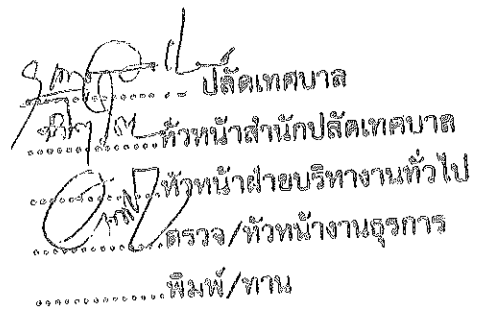 ปลัดเทศบาล
หัวหน้าสำนักปลัดเทศบาล
หัวหน้าฝ่ายบริหารงานทั่วไป
ตรวจ/หัวหน้างานธุรการ
พิมพ์/ทาน